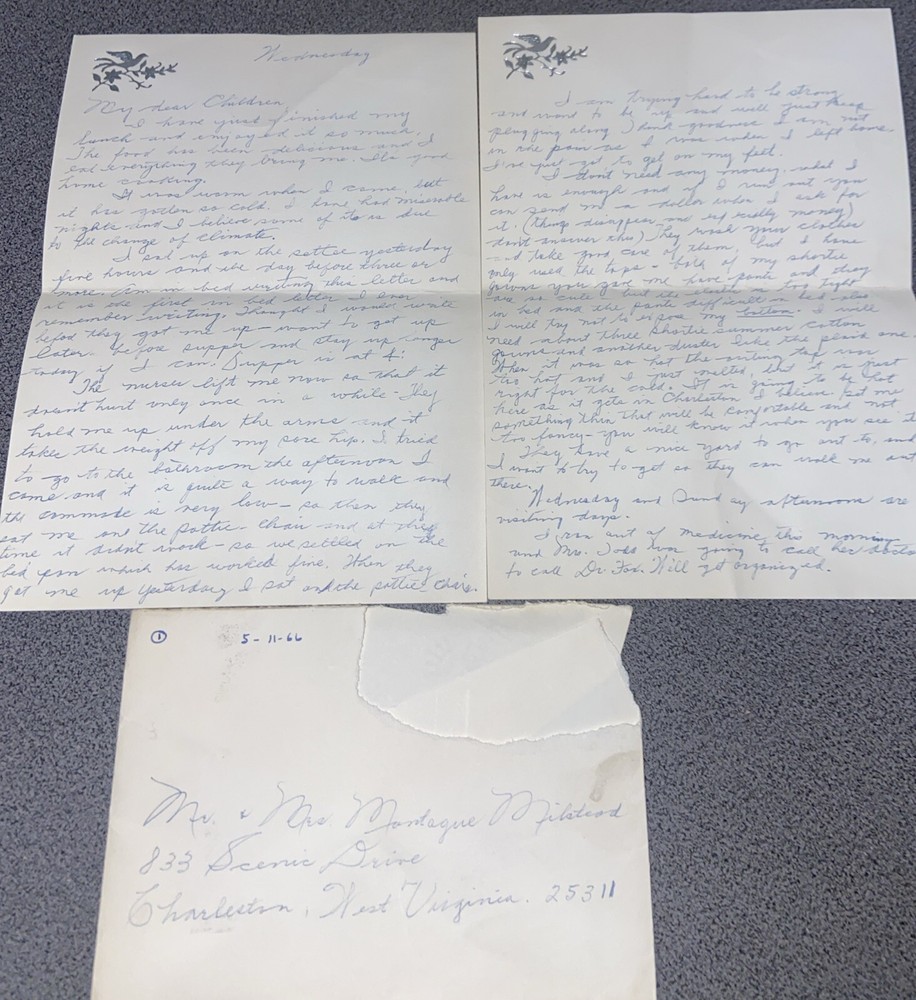 Wednesday
My dear Children,
I have just finished my
lunch and enjoyed it so much.
The food has been delicious and I
eat everything they bring me. It's good
home cooking.
It was warm when I came, but
it has gotten so cold. I have had miserable
nights and I believe some of it is due
to the change of climate.
I sat up on the settee yesterday
five hours and the day before three or
more. Am in bed writing this letter and
it is the first in bed letter I ever
remember writing. Thought I would write
before they got me up - want to get up
later - before supper and stay up longer
today if I can. Supper is at 4:
The nurses lift me now so that it
doesn't hurt only once in a while - They
hold me up under the arms and it
takes the weight off my sore hip. I tried
to go to the bathroom the afternoon I
came and it is quite a way to walk and
the commode is very low - so then they
sat me on the pottie-chair and at that
time it didn't work - so we settled on the
bed pan which has worked fine. When they
get me up yesterday I sat on the pottie-chair.
I am trying hard to be strong
and want to be up and will just keep
plugging along. Thank goodness I am not
in the pain as I was when I left home.
I've just got to get on my feet.
I don't need any money, what I
have is enough and if I run out you
can send me a dollar when I ask for
it. (things disappear and especially money)
don't answer this) They wash your clothes
and take good care of them, but I have
only used the tops - both of my shortie
gowns you gave me have pants and they
are so cute but the elastic is too tight
in bed and the pants difficult in bed also
I will try not to expose my bottom. I will
need about three shortie summer cotton
gowns and another duster like the plaid one.
When it was so hot the suiting top was
too hot and I just melted, but it is just
right for the cold. It is going to be hot
here as it gets in Charleston I believe. Get me
something thin that will be comfortable and not
too fancy - you will know it when you see it
They have a nice yard to go out to, and
I want to try to get so they can walk me out
there.
Wednesday and Sunday afternoons are
visiting days.
I ran out of medicine this morning
and Mrs. Todd was going to call her doctor
to call Dr. Fox. Will get organized.
① 5-11-66
Mr. & Mrs. Montague Milstead
833 Scenic Drive
Charleston, West Virginia. 25311